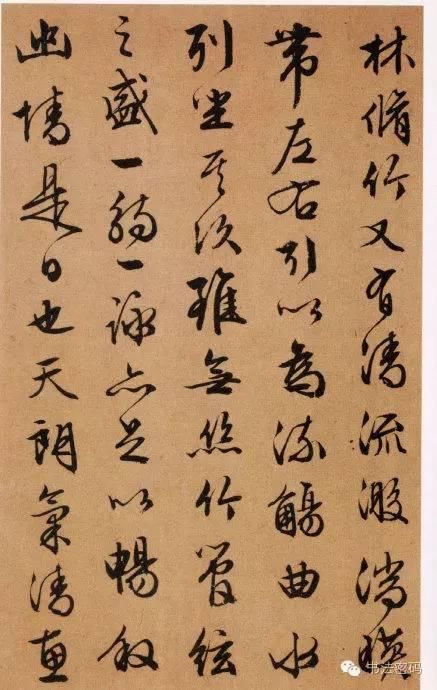 林脩竹又有清流激湍暎
帶左右引以為流觴曲水
列坐其次雖無絲竹管絃
之盛一觴一詠亦足以暢叙
幽情是日也天朗氣清惠
书法密码